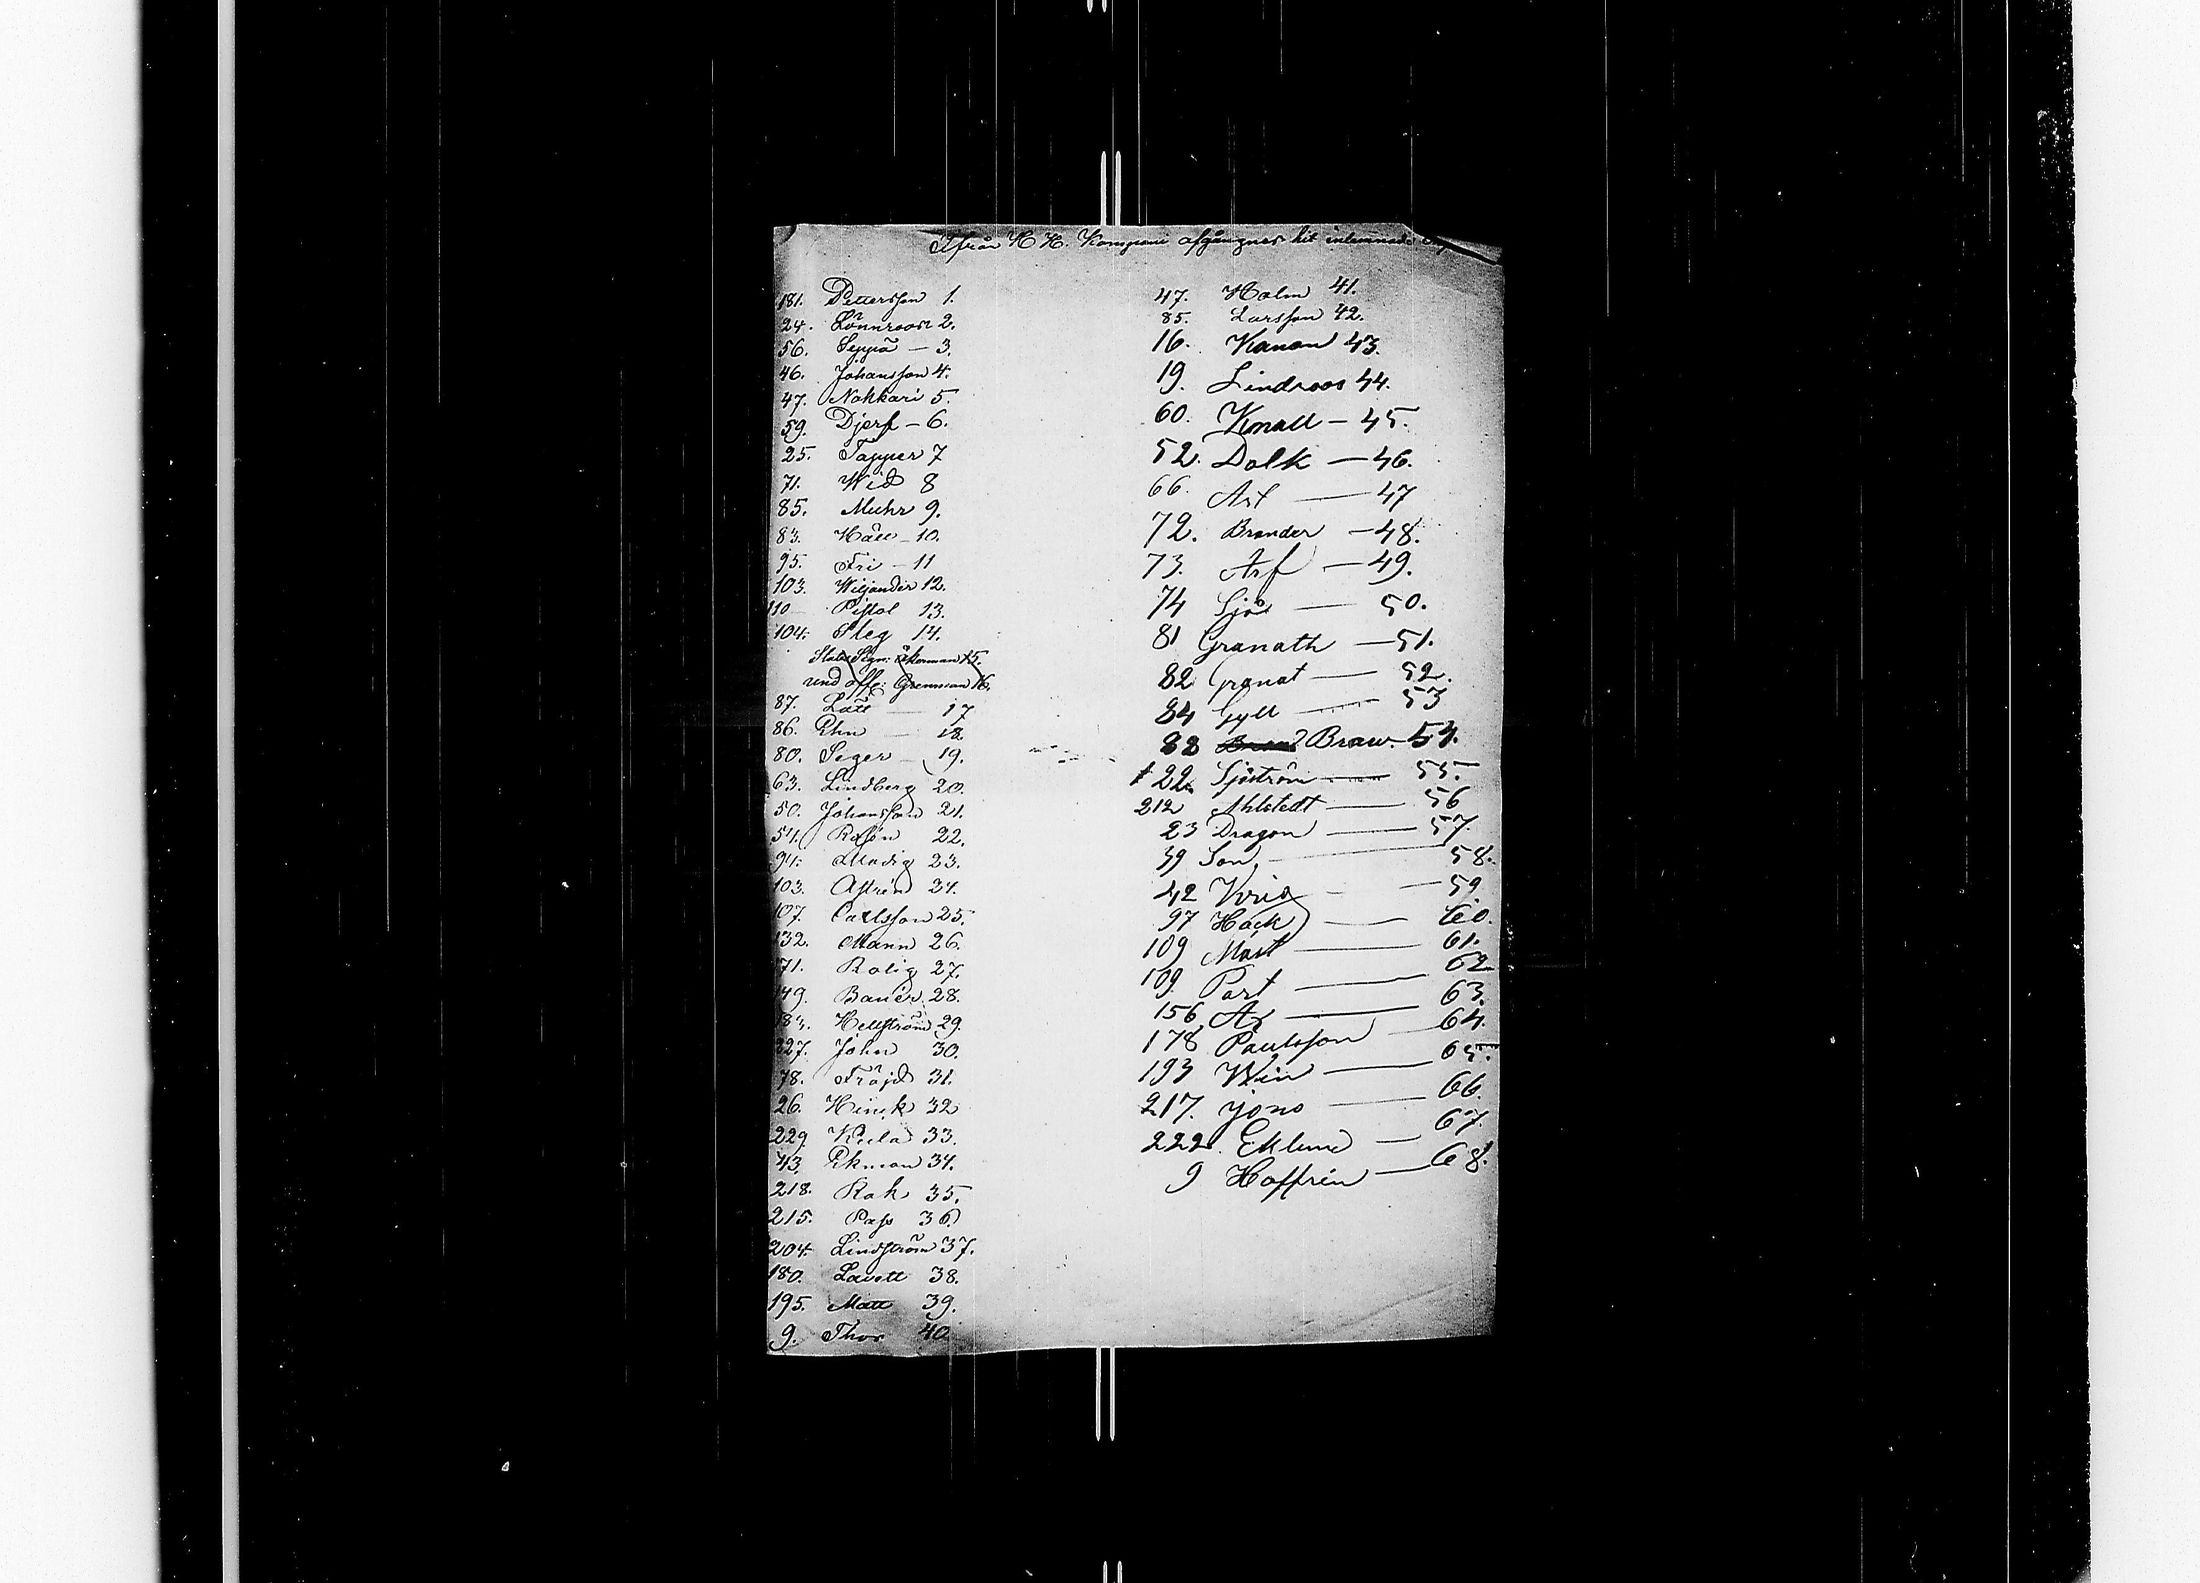 Ifrån H H. Kompani afgångnes hit inlemnade
181. Pettersson 1.
24. Lönnroos 2.
56. Seppä — 3.
46. Johansson 4.
47. Nahkari 5.
59. Djerf — 6.
25. Tapper 7
71. Wid 8
85. Muhr 9.
83. Häll — 10.
95. Fri — 11
103. Wiljander 12.
110 Pistol 13.
104. Steg 14.
Åkerman 15.
und off: Grenman 16.
87. Lätt — 17
86. Ehn — 18
80. Seger — 19.
63. Lindberg 20.
50. Johansson 21.
54. Rosén 22.
94. Modig 23.
103. Astrén 24.
107. Carlsson 25.
132. Mann 26.
71. Rolig 27.
149. Banér 28.
183. Hellström 29.
227. John 30.
78. Fröjd 31.
26. Hinck 32
229 Kula 33.
43. Ekman 34.
218. Rak 35.
215. Pass 36.
204. Lindström 37.
180. Lavett 38.
195. Matt 39.
9. Thor 40
47. Holm 41.
85. Larsson 42.
16. Kanon 43.
19. Lindroos 44.
60. Knall — 45.
52. Dolk — 46.
66. Art — 47
72. Brander — 48.
73. Arf — 49.
74 Sjö — 50.
81 Granath — 51.
82 Granat — 52.
84 Gyll — 53
88 Braw. 54.
122. Sjöström — 55.
212 Ahlstedt — 56
23 Dragon — 57.
39 Son. — 58.
42 Krig — 59.
97 Hack — 60.
109 Mast — 61.
109. Part — 62
156 Ax — 63.
178 Paulsson — 64.
193 Win — 65.
217. Jons — 66.
222. Eklund — 67.
9 Hoffrén — 68.